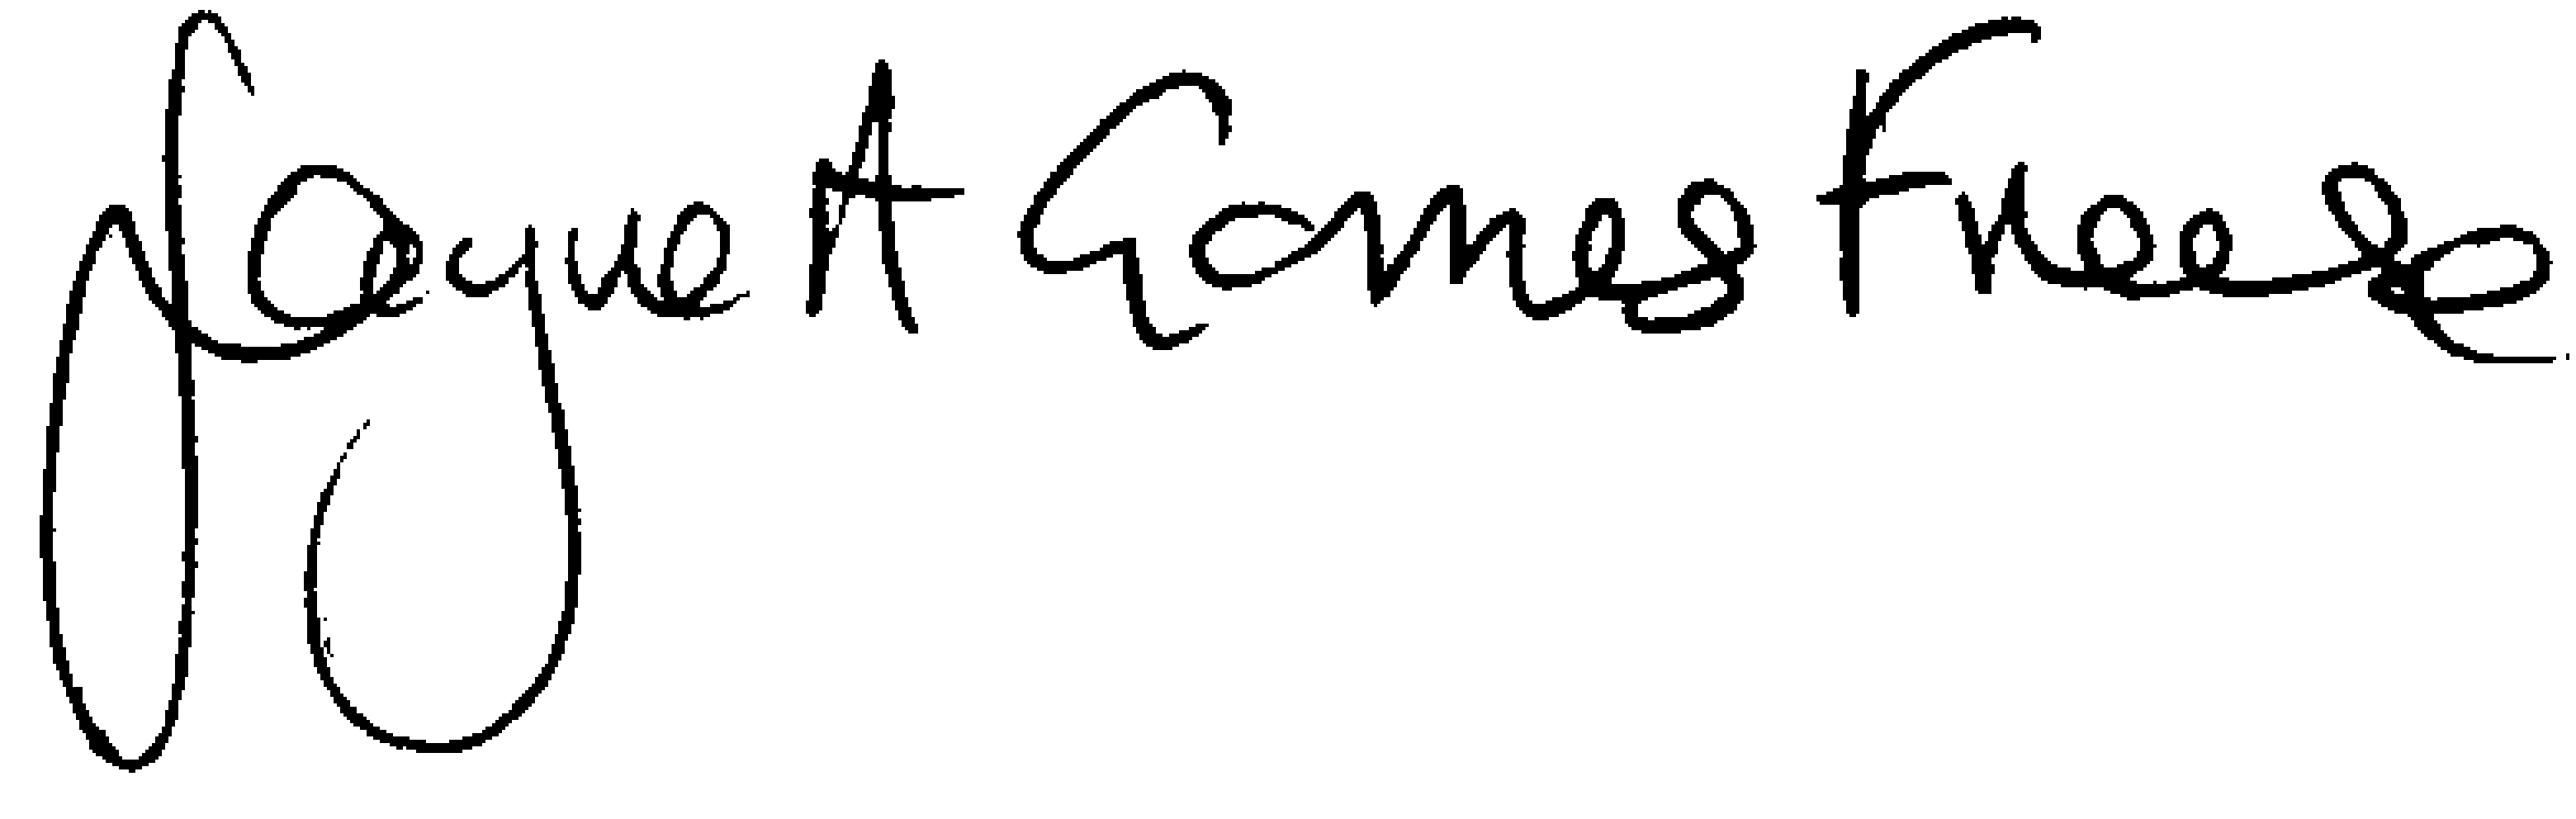 Jayne A Games Freese